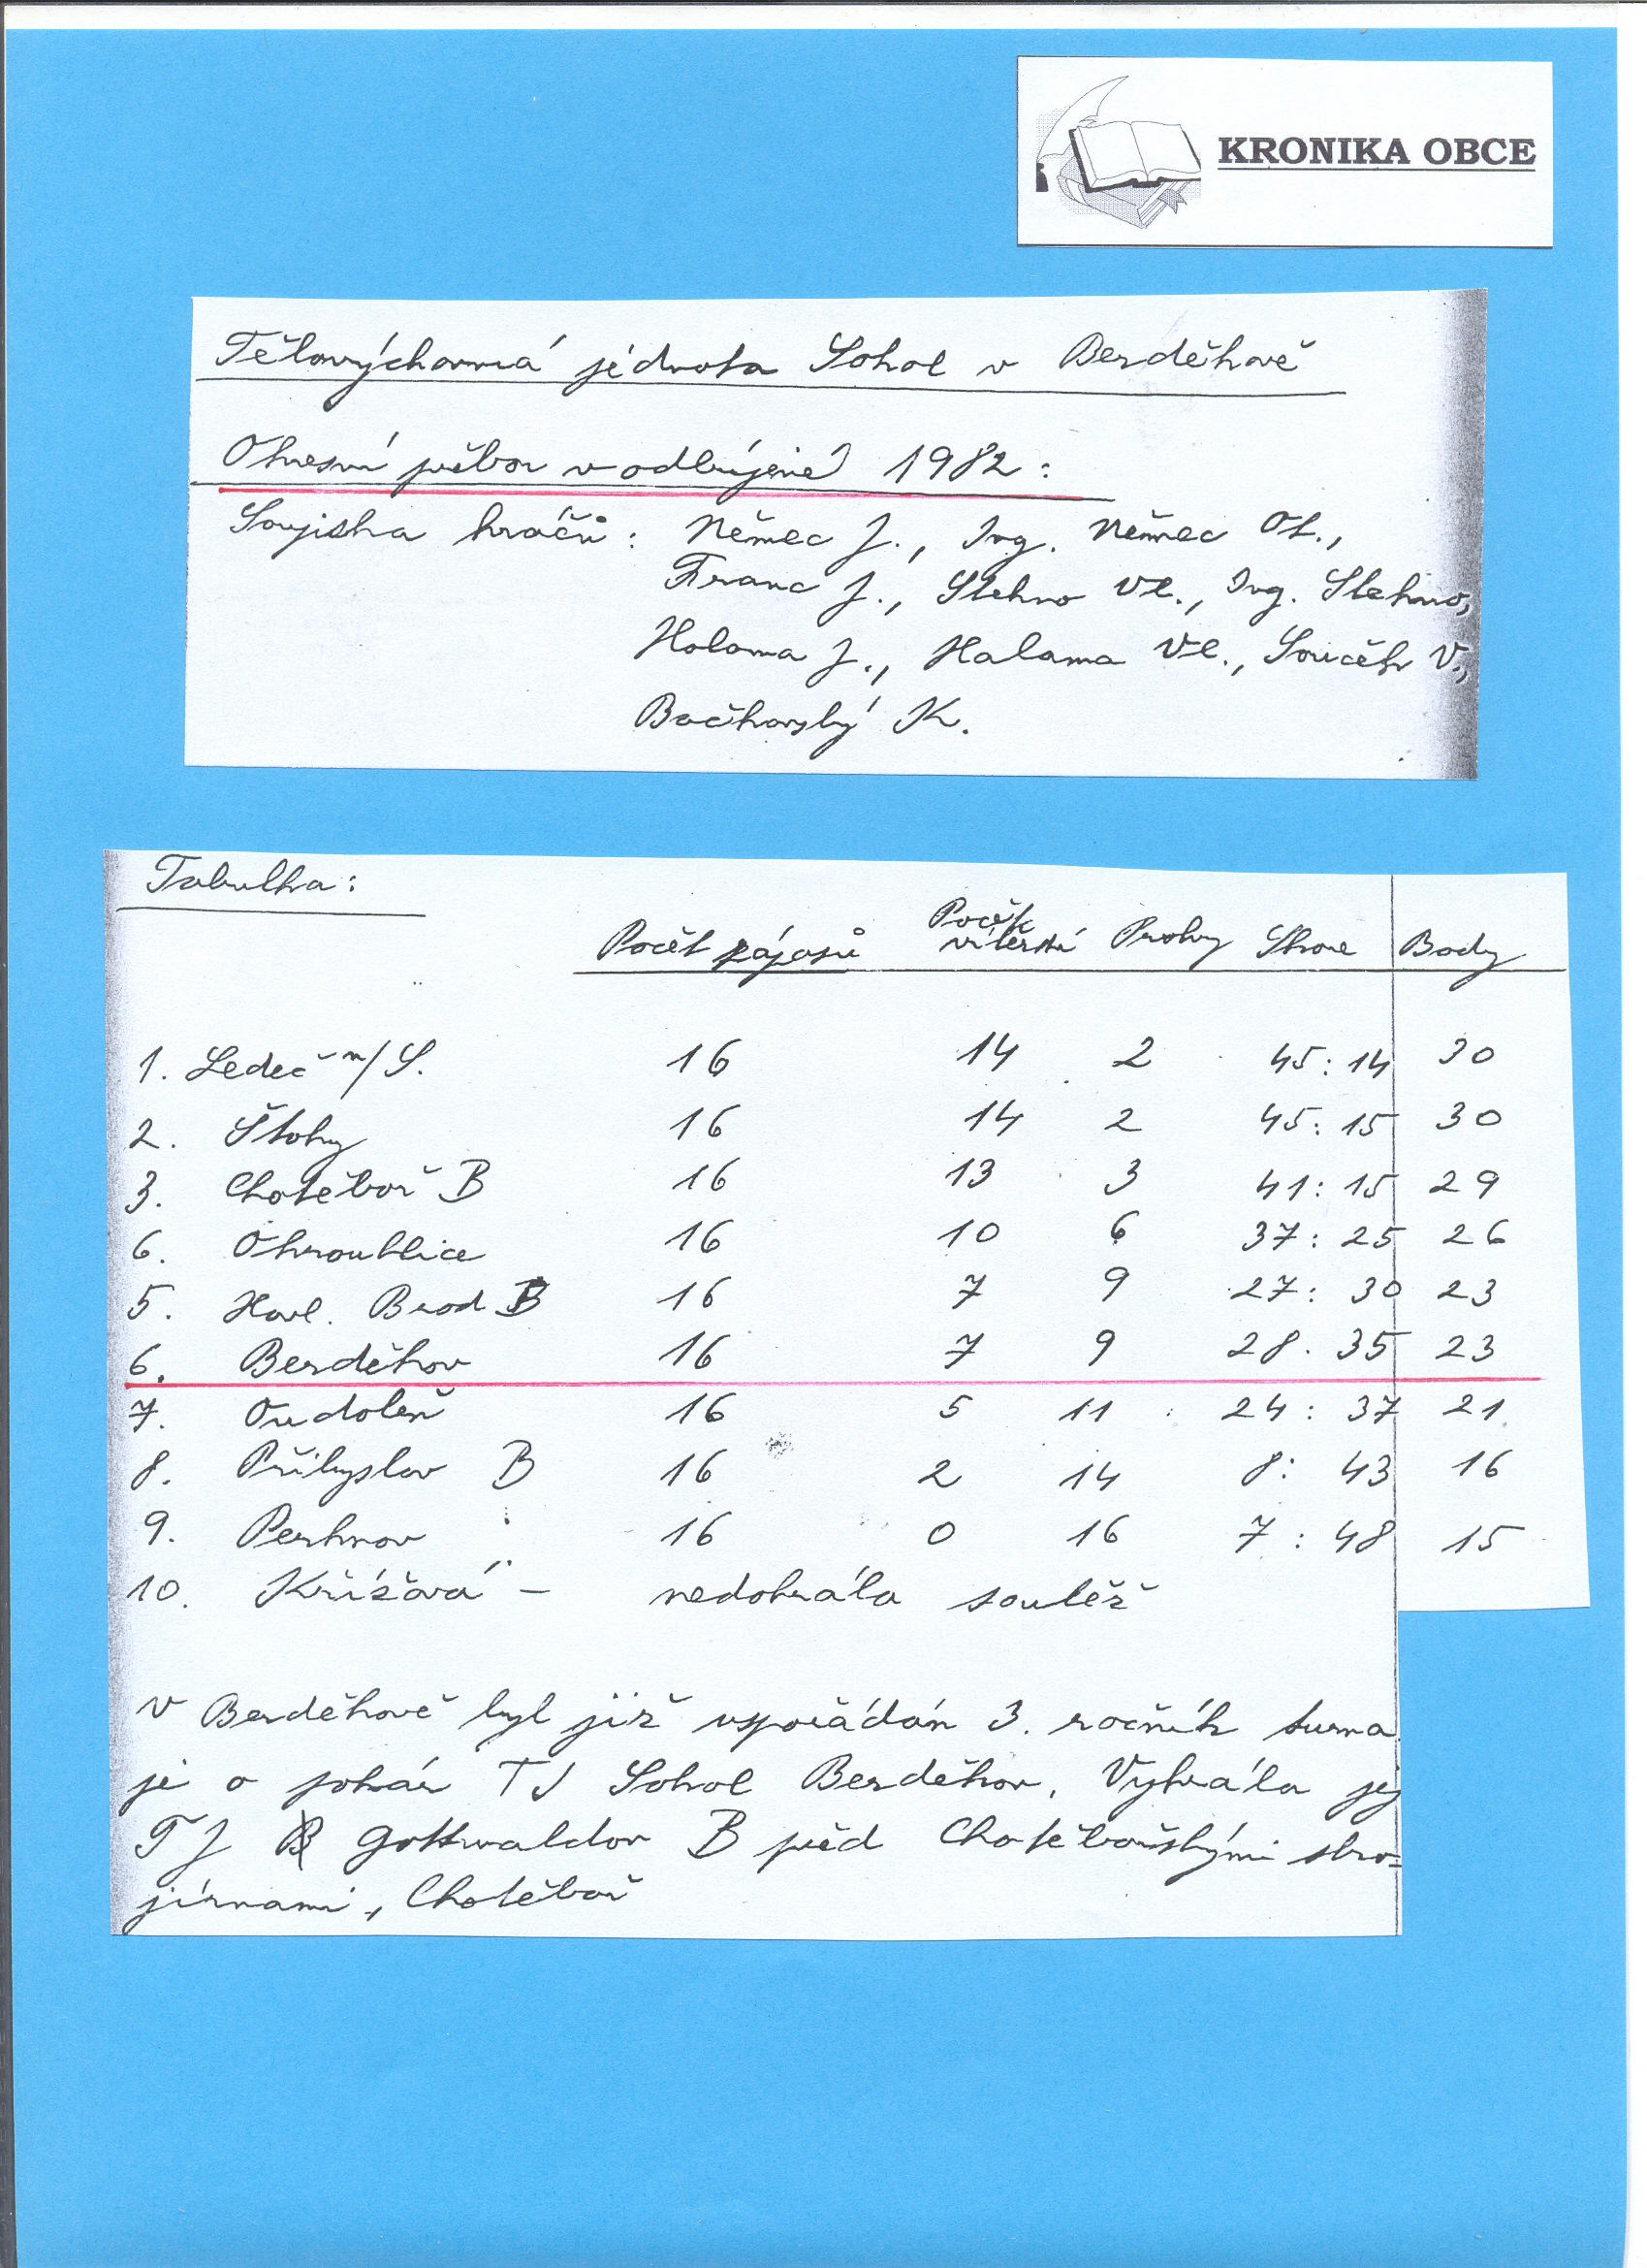 KRONIKA OBCE
Tělovýchovná jednota Sokol v Berděkově
Okresní přebor v odbíjené 1982:
Soupiska hráčů: Němec J., Ing. Němec Ot.,
Franc J., Stehno Vl., Ing. Stehno,
Holama J., Halama Vl., Souček V.,
Bačkovský K.
Tabulka:
Počet zápasů Počet vítězství Prohry Skore Body
1. Ledeč n/S. 16 14 2 45:14 30
2. Štoky 16 14 2 45:15 30
3. Chotěboř B 16 13 3 41:15 29
6. Okrouhlice 16 10 6 37:25 26
5. Havl. Brod B 16 7 9 27:30 23
6. Berděkov 16 7 9 28.35 23
7. Oudoleň 16 5 11 24:37 21
8. Přibyslav B 16 2 14 8:43 16
9. Perknov 16 0 16 7:48 15
10. Křížová - nedohrála soutěž
V Berděkově byl již uspořádán 3. ročník turna
je o pohár TJ Sokol Berděkov. Vyhrála jej
TJ Gottwaldov B před Chotěbořskými stro-
jírnami, Chotěboř